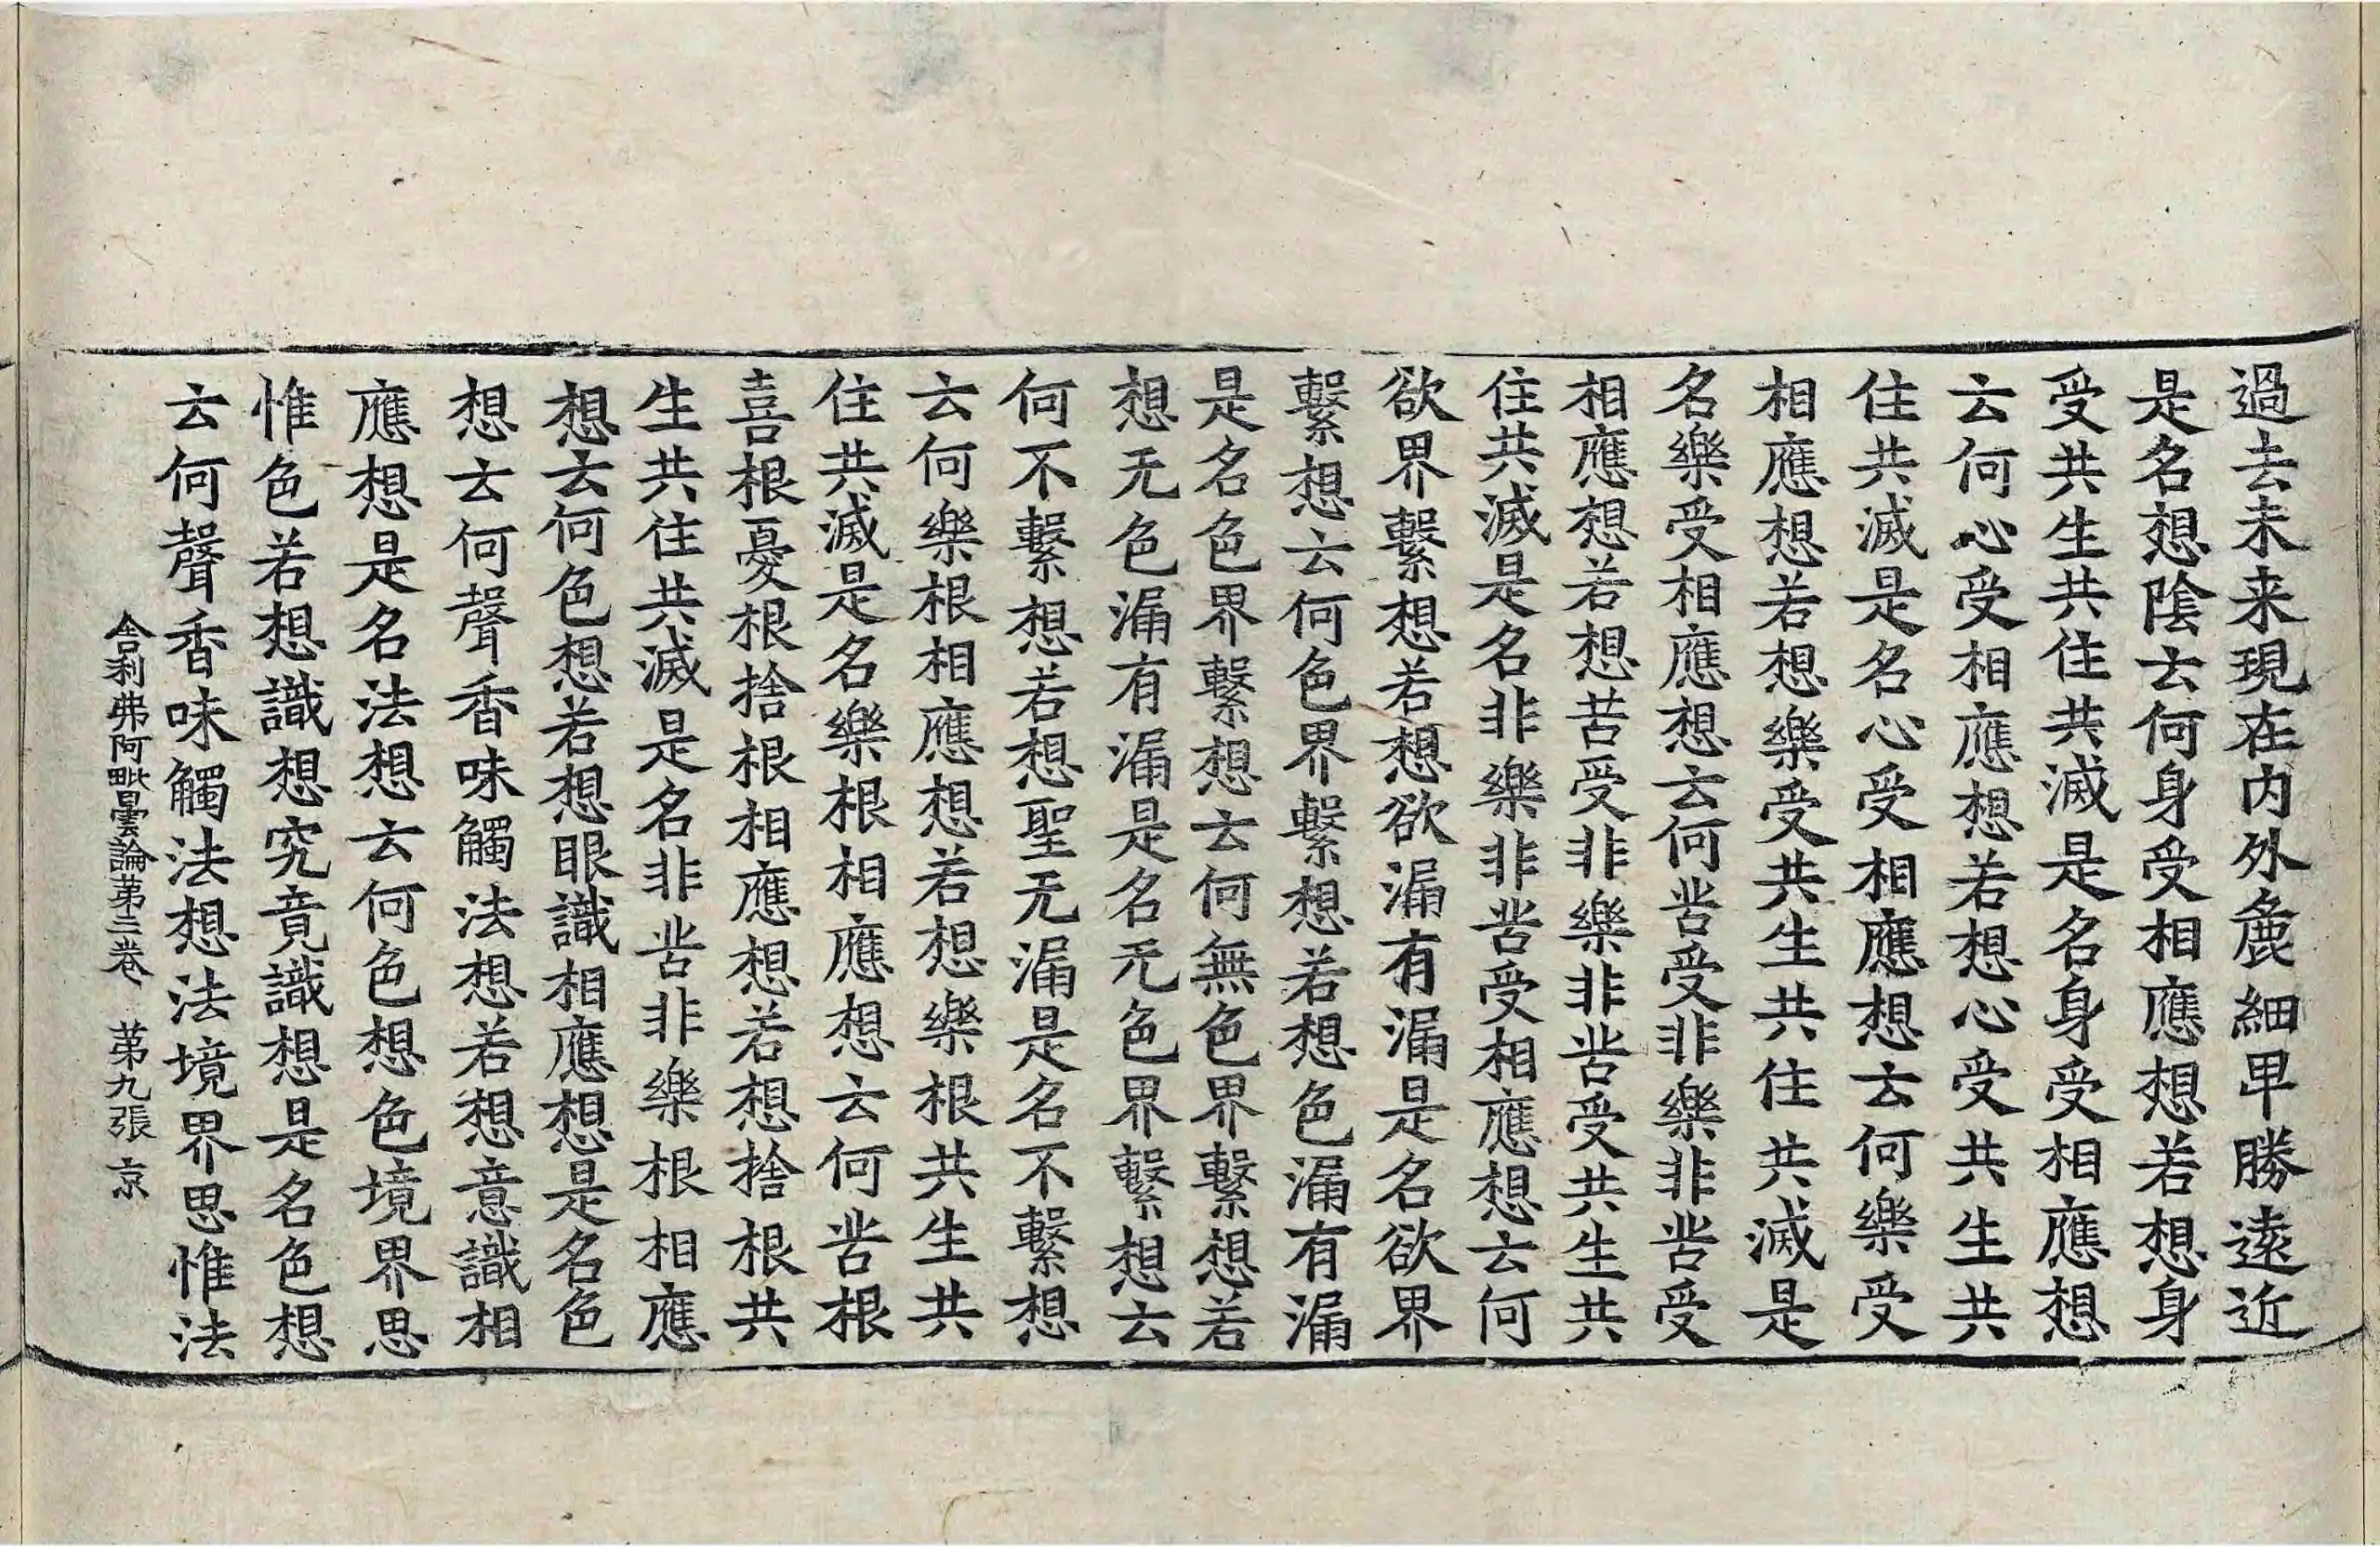 過去未来現在内外麁細卑勝遠近
是名想陰云何身受相應想若想身
受共生共住共滅是名身受相應想
云何心受相應想若想心受共生共
住共滅是名心受相應想云何樂受
相應想若想樂受共生共住共滅是
名樂受相應想云何苦受非樂非苦受
相應想若想苦受非樂非苦受共生共
住共滅是名非樂非苦受相應想云何
欲界繫想若想欲漏有漏是名欲界
繫想云何色界繫想若想色漏有漏
是名色界繫想云何無色界繫想若
想无色漏有漏是名无色界繫想云
何不繫想若想聖无漏是名不繫想
云何樂根相應想若想樂根共生共
住共滅是名樂根相應想云何苦根
喜根憂根捨根相應想若想捨根共
生共住共滅是名非苦非樂根相應
想云何色想若想眼識相應想是名色
想云何聲香味觸法想若想意識相
應想是名法想云何色想色境界思
惟色若想識想究竟識想是名色想
云何聲香味觸法想法境界思惟法
舍利弗阿毗曇論苐三卷 苐九張 京